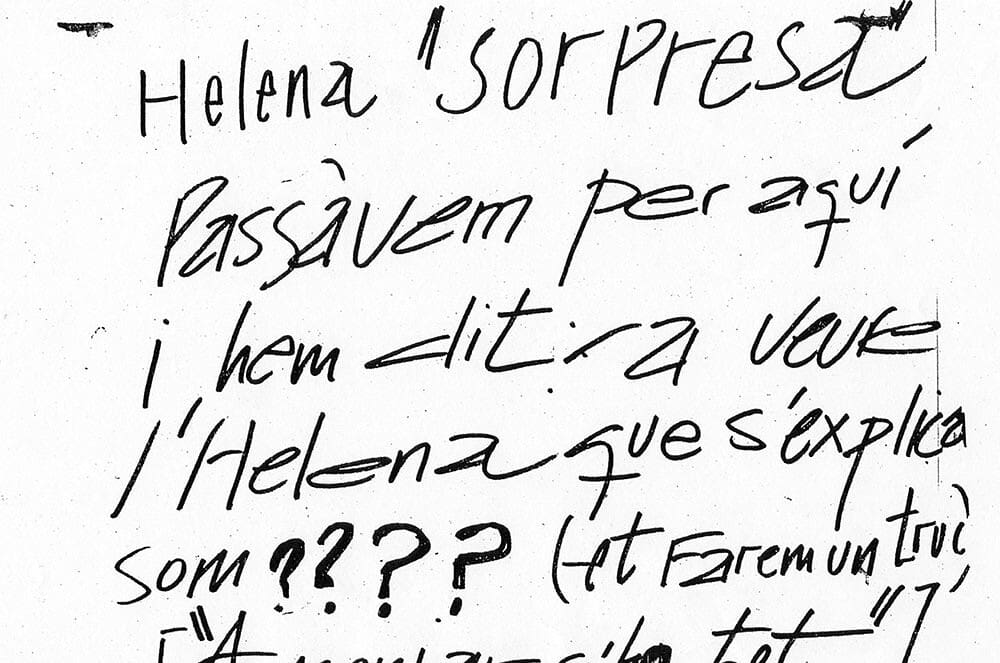 Helena "sorpresa"
Passàvem per aquí
i hem dit: a veure
l'Helena que s'explica
som ???? (et Farem un truc